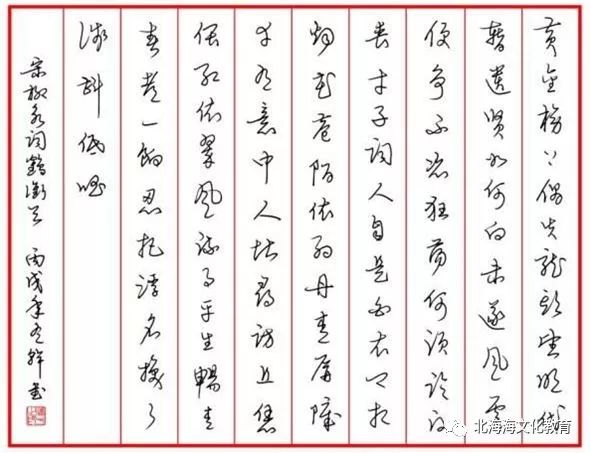 黄金榜上偶失龍头望明代
暂遗贤如何向未遂风云
便争不恣狂荡何须论得
丧才子词人自是白衣卿相
烟花巷陌依约丹青屏障
幸有意中人堪寻访且恁
偎红依翠风流事平生暢青
春都一饷忍把浮名换了
浅斟低唱
宋柳永词鹤冲天 丙戌年 书
北海海文化教育